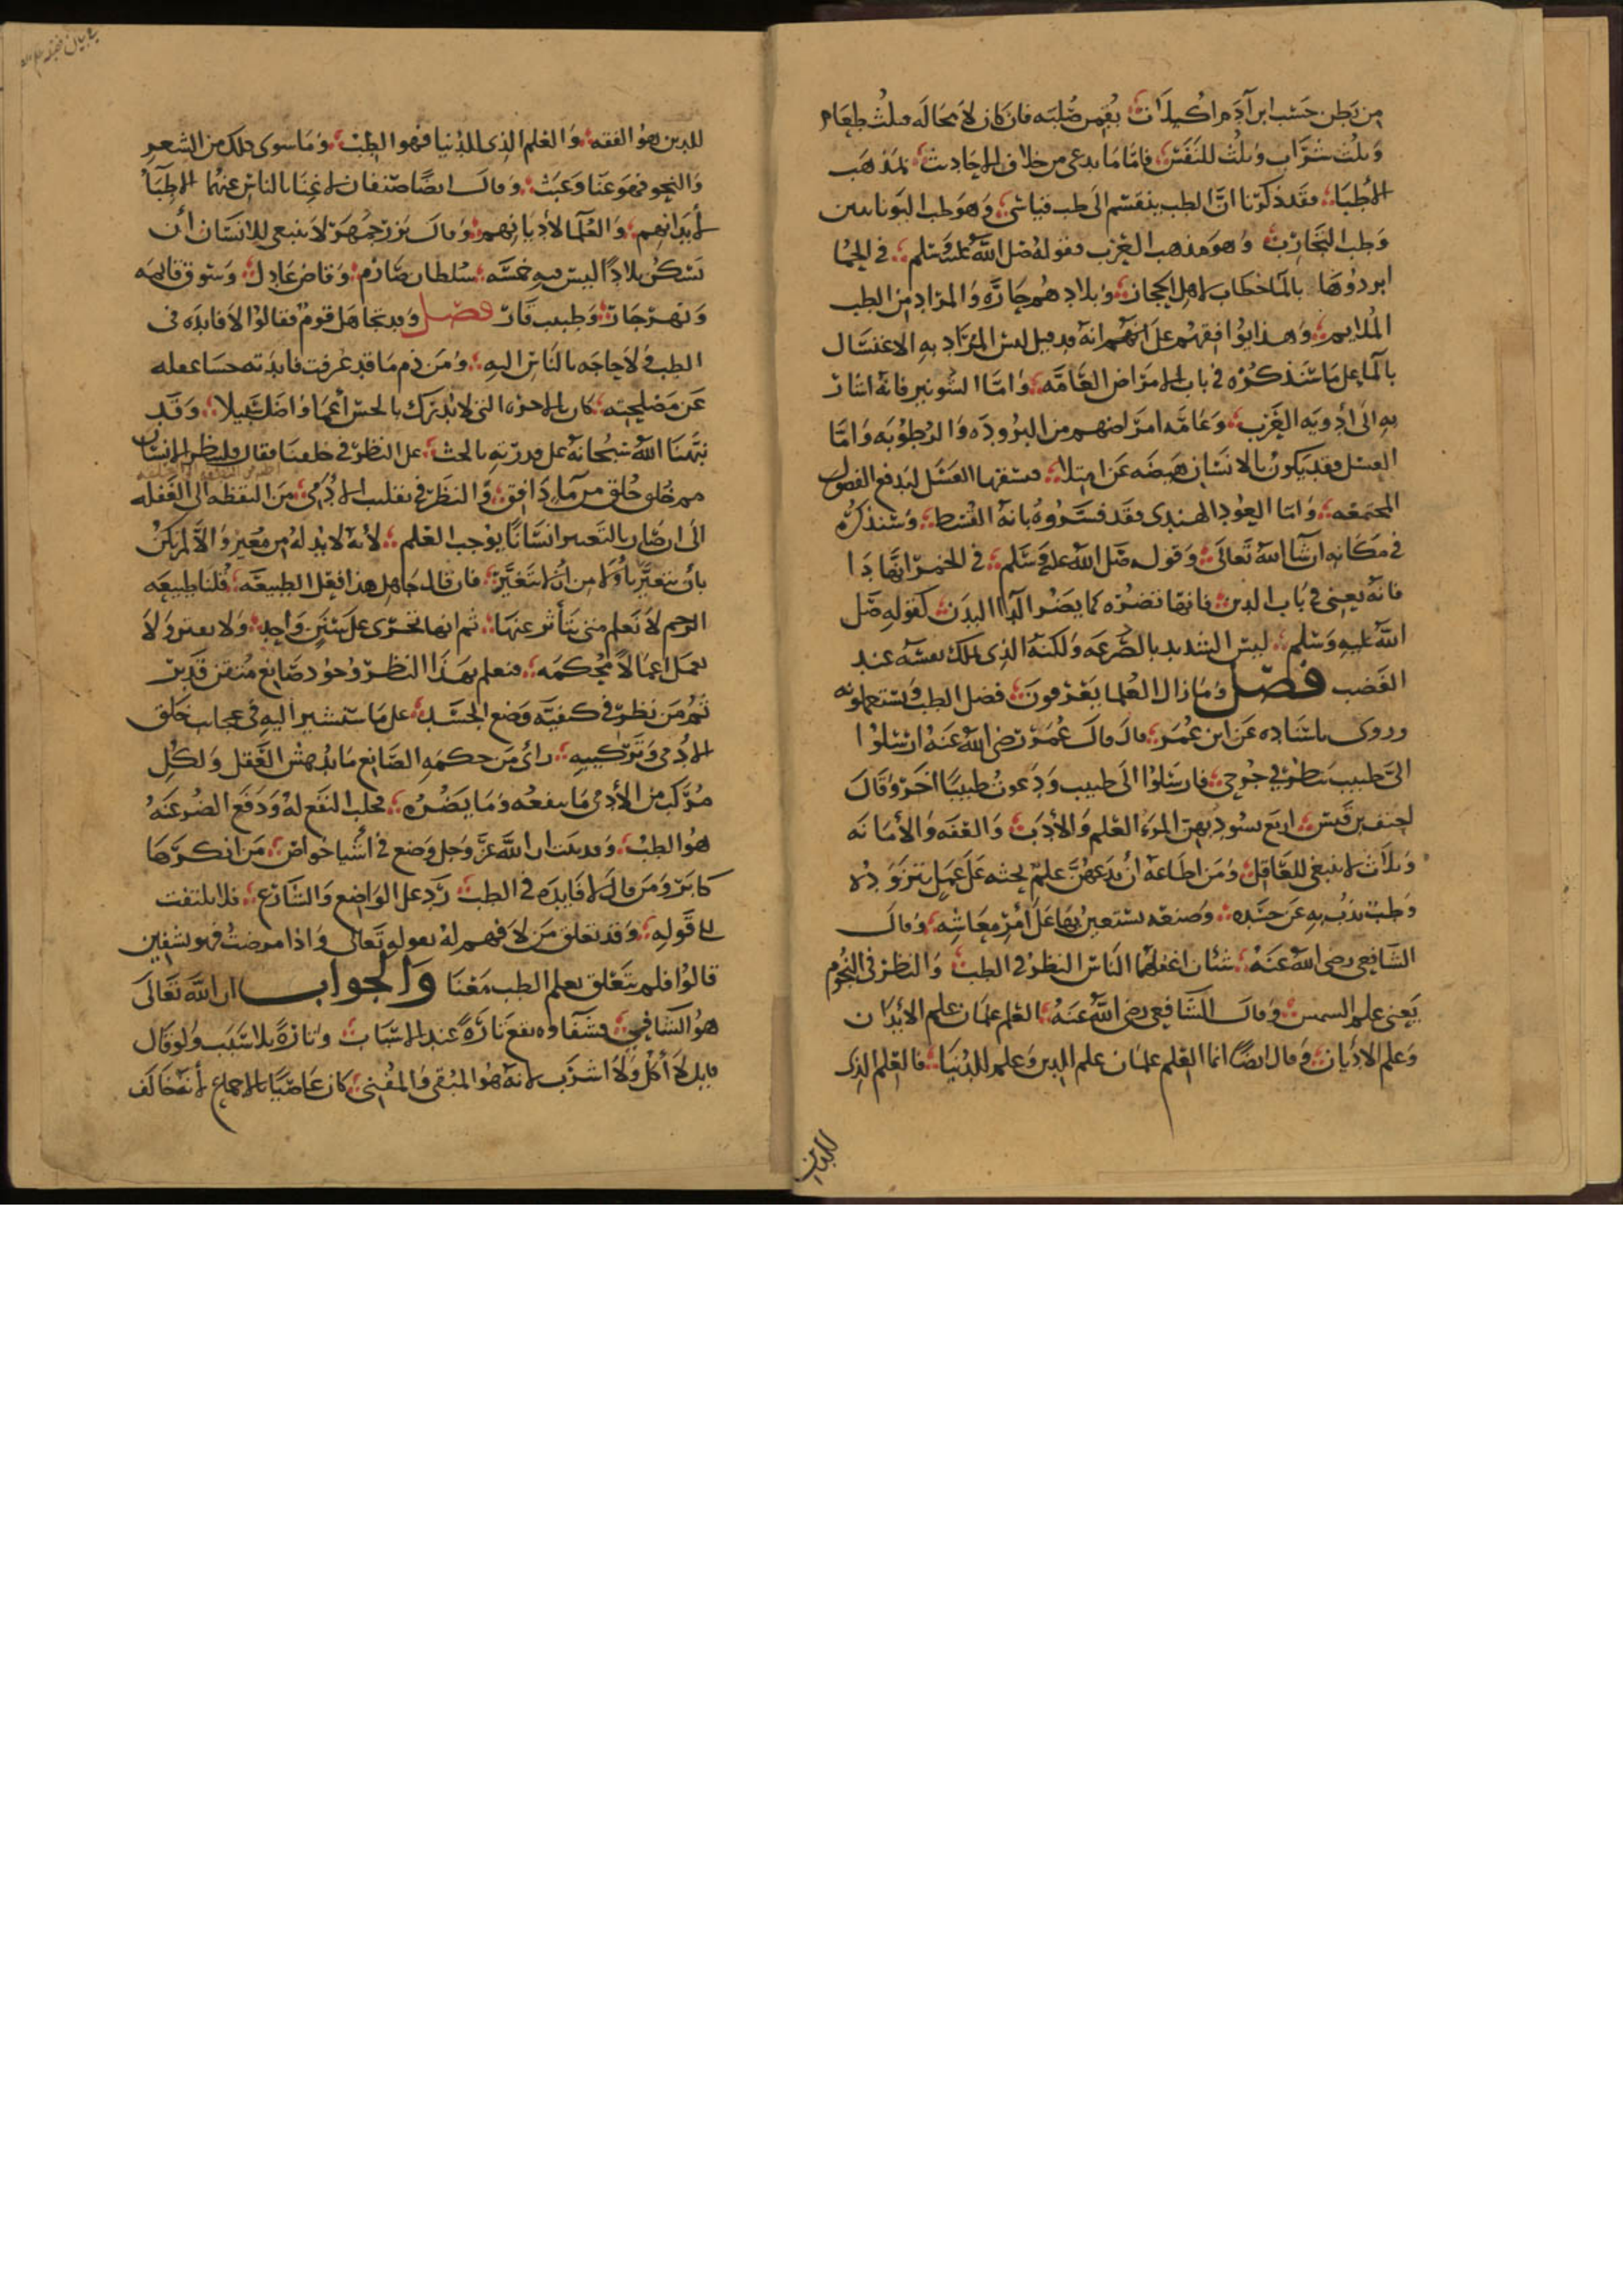 من بطن حسب ابن آدم اكيلات يقمن صلبه فان كان لا محالة فثلث طعام
وثلث شراب وثلث للنفس فاما ما يدعى من خلاف الاحاديث لمذهب
الأطبا فقد ذكرنا انّ الطب ينقسم الى طب قياسي وهو طب اليونانيين
وطب التجارب وهو مذهب العرب فقوله صلى الله عليه وسلم في الحمّا
ابردوها بالما خطاب لاهل الحجاز وبلادهم حارّه والمراد من الطب
الملايم وهذا يوافقهم على انهم انه قد قيل ليس المراد به الاغتسال
بالما على ما سنذكره في باب الامراض العامّه واما الشونيز فانه اشار
به الى أدوية العرب وعامّه امراضهم من البروده والرطوبه وامّا
العسل فقد يكون بالانسان هيضه عن امتلا فسقيها العسل ليدفع الفضول
المجتمعه واما العود الهندي فقد فسّروه بانه القسط وسنذكره
في مكانه ان شا الله تعالى وقوله صلى الله عليه وسلم في الخمر انها دا
فانه يعني في باب الدين فانها تضره كما يضر الدا البدن كقوله صلى
الله عليه وسلم ليس الشديد بالصرعه ولكنه الذي يملك نفسه عند
الغضب فصل وما زال العلما يعرفون فضل الطب ويستعملونه
وروى باسناده عن ابن عمر قال قال عمر رضي الله عنه ارسلوا
الى طبيب ينظر في جرحي فارسلوا الى طبيب ودعوت طبيبا اخر وقال
احنف بن قيس اربع يسود بهن المرء العلم والأدب والعفه والأمانه
وثلاث لا ينبغي للعاقل ومن اطاعه ان يدعهنّ علم يحثه على عمل يتزوده
وطب يذب به عن جسده وصنعه يستعين بها على أمر معاشه وقال
الشافعي رضي الله عنه شيئان اغفلهما الناس النظر في الطب والنظر في النجوم
يعني علم السمس وقال الشافعي رضي الله عنه العلم علمان علم الأبدان
وعلم الاديان وقال ايضًا انما العلم علمان علم الدين وعلم للدنيا فالعلم الذي
للدين
للدين هو الفقه والعلم الذي للدنيا فهو الطب وما سوى ذلك من الشعر
والنحو فهو عنا وعبث وقال ايضًا صنفان لا غنا بالناس عنهما الاطبّا
لأبدانهم والعلما لأديانهم وقال بزرجمهر لا ينبغي للانسان أن
يسكن بلادًا ليس فيه خمسه سلطان صارم وقاض عادل وسوق قايمه
ونهر جار وطبيب قار فصل وقد تجاهل قوم فقالوا لا فايده في
الطب ولا حاجه بالناس اليه ومن ذم ما قد عرفت فايدته حسا بعقله
عن مصلحته كان بالاخره التي لا تدرك بالحس أعما واضل سبيلا وقد
نبّهنا الله سبحانه على قدرته بالحث على النظر في خلقنا فقال فلينظر الانسان
مم خلق خلق من مآء دافق والنظر في تقلب الادمي من اليقظه الى الغفله
الى ان صار بالتغيير انسانًا يوجب العلم لأنه لا بد له من مغير والا لم يكن
بأن يتغير بأولى من ان لا يتغير فان قال جاهل هذا فعل الطبيعه قلنا طبيعه
الرحم لا تعلم متى يتأثر عنها ثم انها تجري على سنن واحد ولا يعتور ولا
تعمل اعمالا محكمه فنعلم بهذا النظر وجود صانع متقن قدير
ثم من نظر في كيفيه وضع الجسد على ما سنشير اليه في عجايب خلق
الادمي وتركيبه رأى من حكمه الصانع ما يدهش العقل ولكل
مركب من الأدمي ما ينفعه وما يضره فجلب النفع له ودفع الضر عنه
هو الطب وقد ثبت ان الله عز وجل وضع في أشيا خواص من انكرها
كابر ومن قال لا فايده في الطب ردّ على الواضع والشارع فلا يلتفت
الى قوله وقد تعلق من لا فهم له بقوله تعالى واذا مرضت فهو يشفين
قالوا فلم يتعلق بعلم الطب معنا والجواب ان الله تعالى
هو الشافي فشفاوه يقع تارةً عند الاسباب وتارةً بلا سبب ولو قال
قايل لا أكل ولا اشرب لانه هو المبقي والمفني كان عاصيًا بالاجماع لأنه خالف